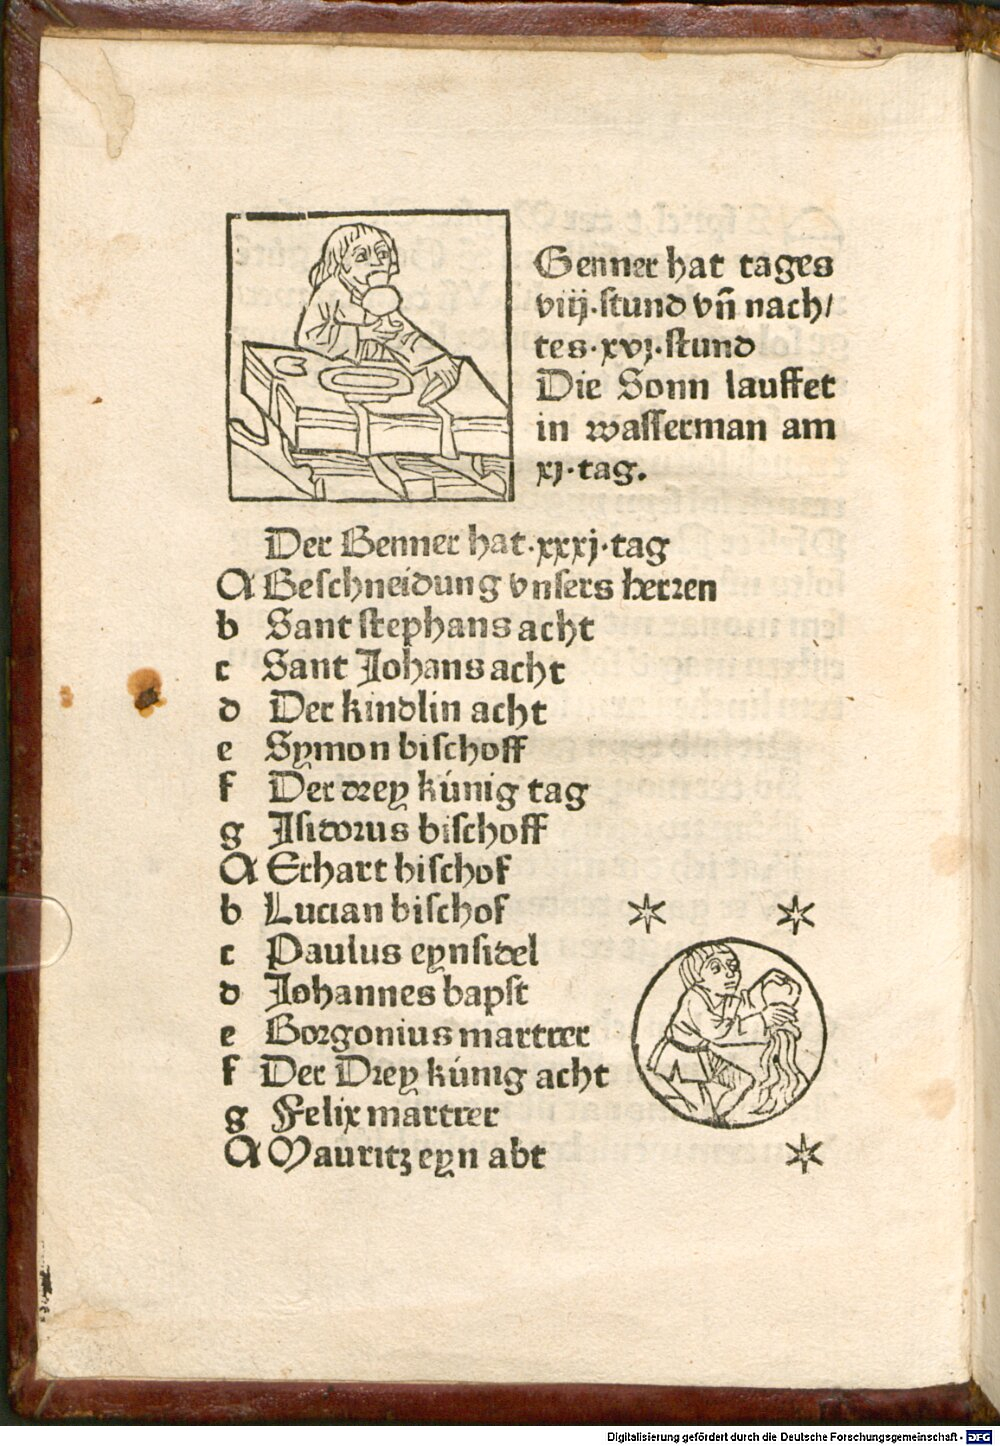 Genner hat tages
viij·stund vñ nach/
tes·xvj·stund
Die Sonn lauffet
in wasserman am
xj·tag.
Der Genner hat·xxxj·tag
A Beschneidung vnsers herren
b Sant stephans acht
c Sant Johans acht
d Der kindlin acht
e Symon bischoff
f Der drey kúnig tag
g Jsidorus bischoff
A Erhart bischof
b Lucian bischof
c Paulus eynsidel
d Johannes bapst
e Gorgonius martrer
f Der Drey kúnig acht
g Felix martrer
A Mauritz eyn abt
Digitalisierung gefördert durch die Deutsche Forschungsgemeinschaft - DFG